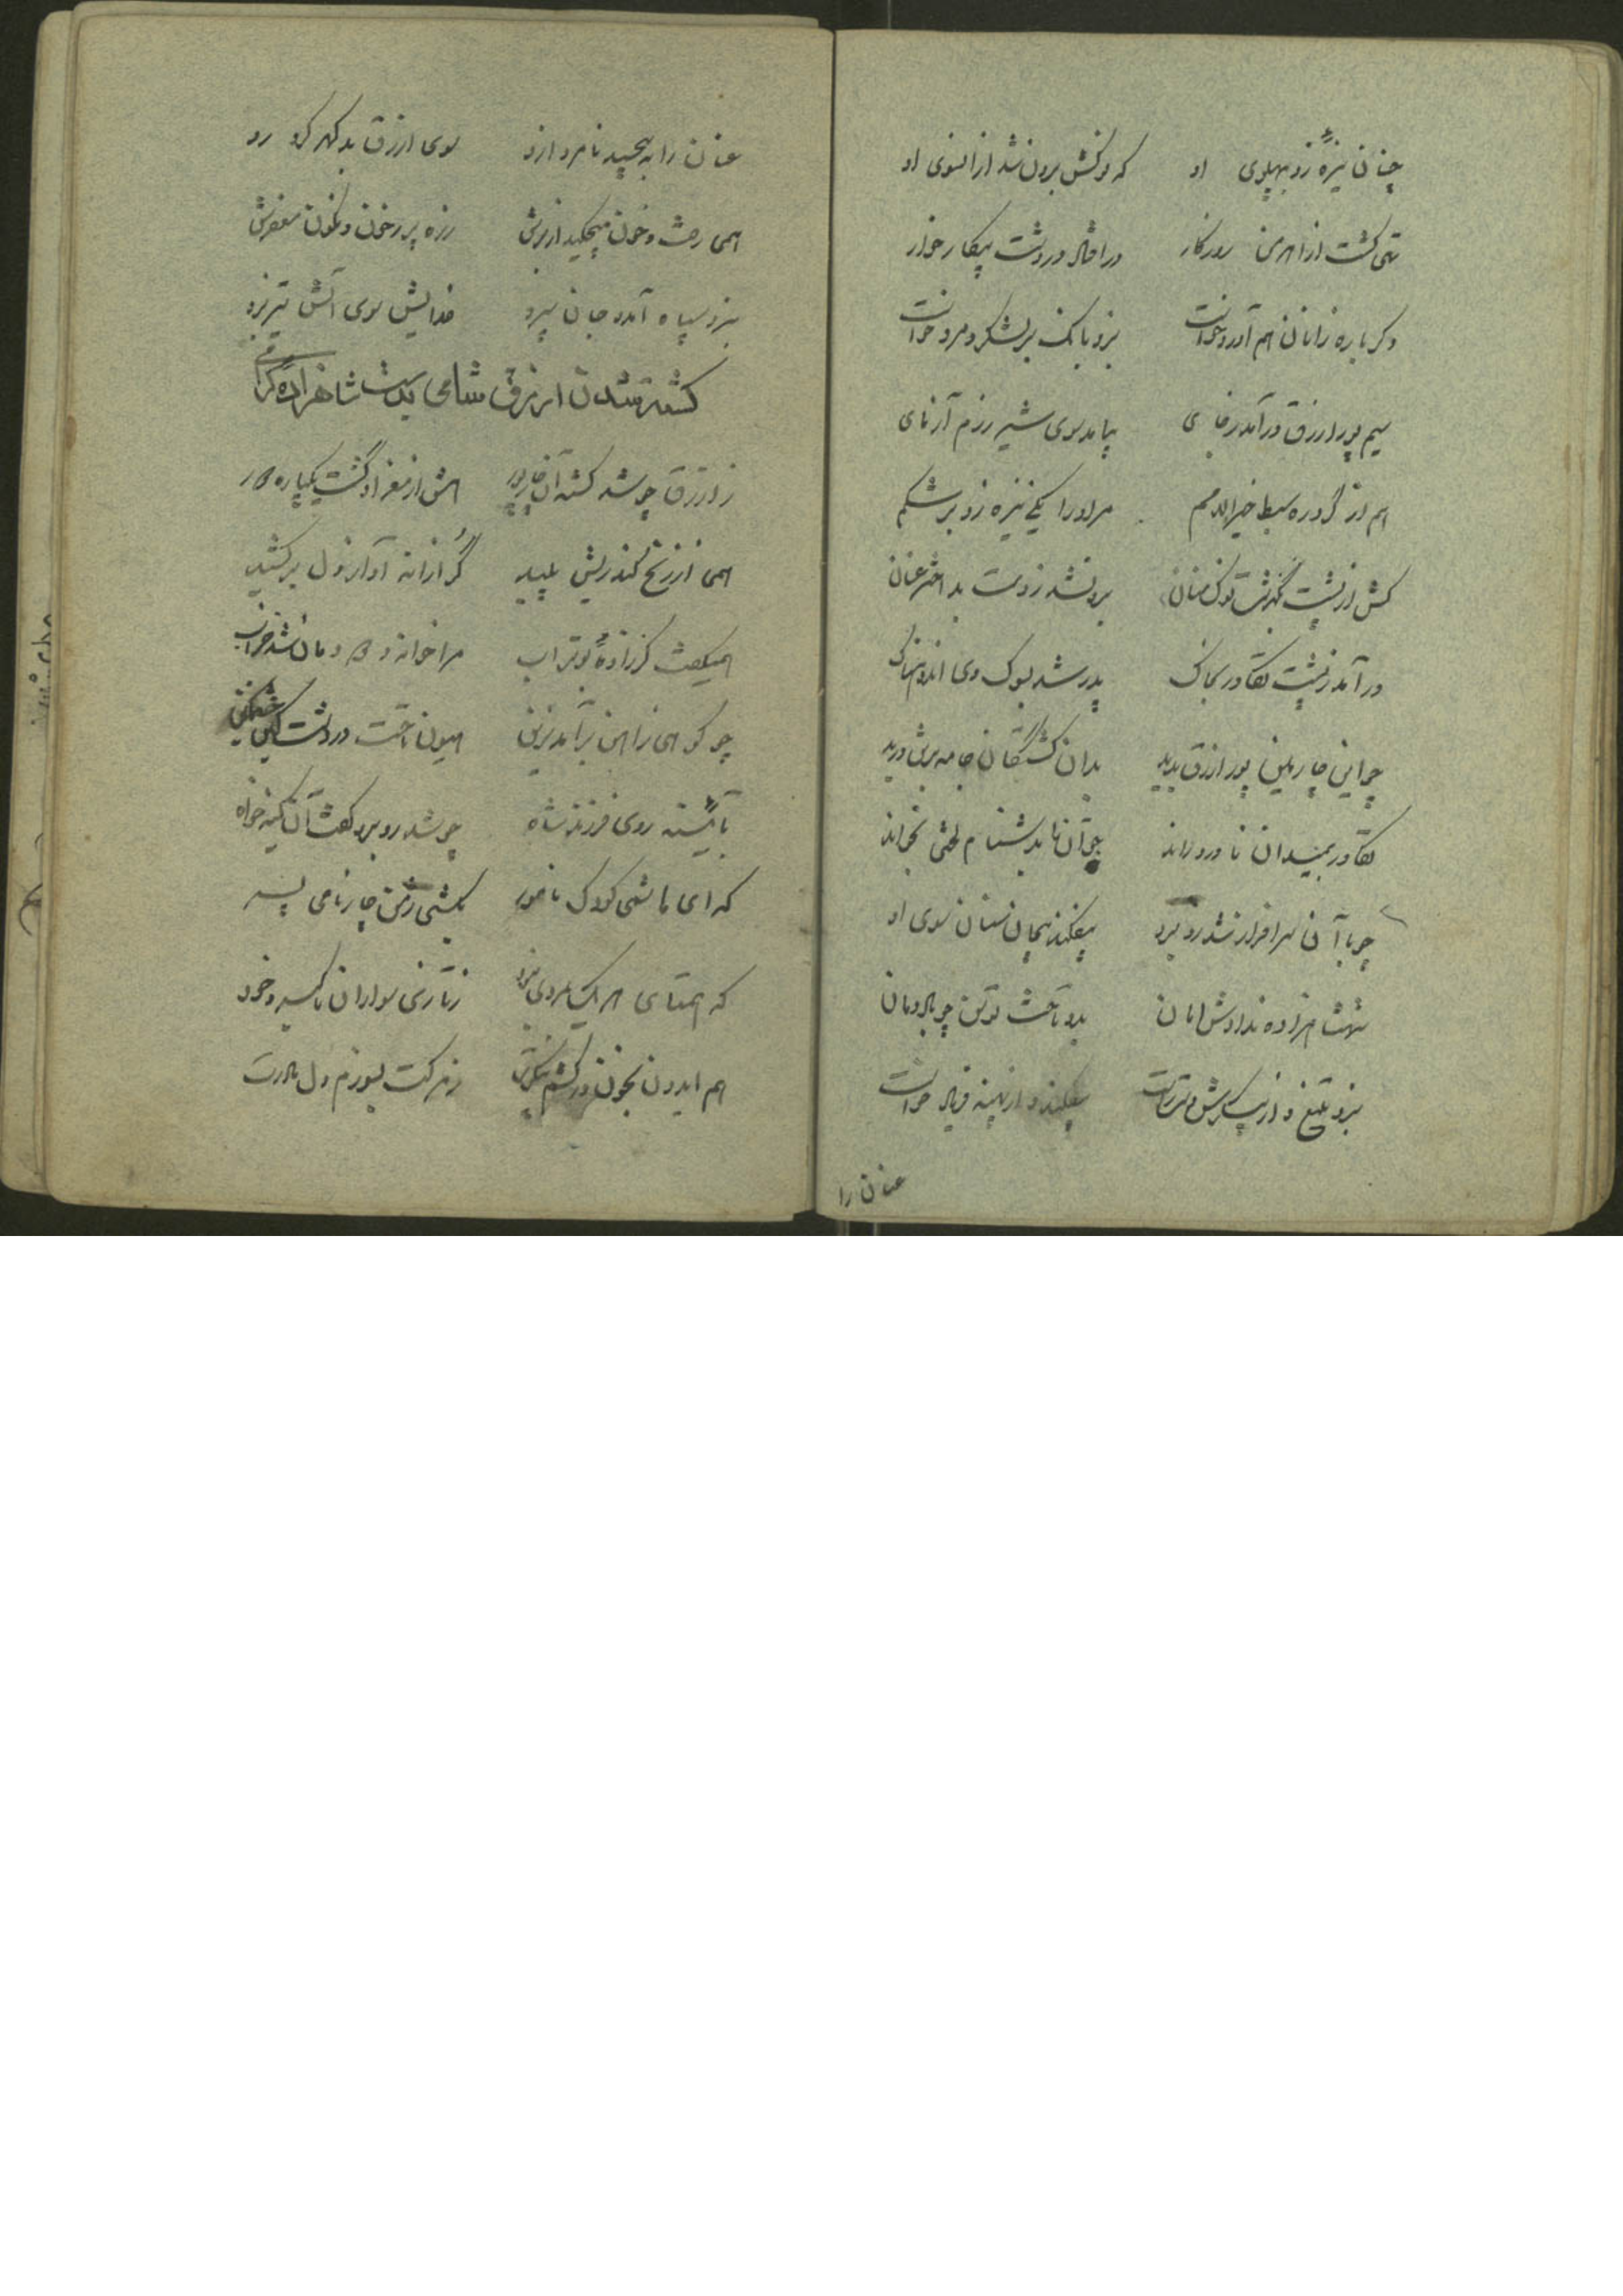 چنان نیزهٔ زد بپهلوی او که نوکش برون شد از انسوی او
تهی گشت از اهرمن روزگار در افتاد در دشت پیکار خوار
دگر باره زانان هم آورد خواست بزد بانگ بر لشکر و مرد خواست
سیم پور ازرق در آمد ز جای بیامد سوی شیر رزم آزمای
هم از گرد ره سبط خیر الامم مر او را یکی نیزه زد بر شکم
کش از پشت بگذشت نوک سنان برون شد ز دست بد اختر عنان
در آمد ز پشت تکاور بخاک پدر شد بسوک وی اندوهناک
چو این چارمین پور ازرق بدید بدان کشتگان جامه برش درید
تکاور بمیدان ناورد راند چو آنان بدشنام لختی بخواند
چو با آن سرافراز شد روبرو بیفکند پیچان سنان سوی او
شهنشاهزاده ندادش امان بدو تاخت توسن چو باد دمان
بزد تیغ و از پیکرش دست راست بیفکند و از پهنه فریاد خواست
عنان را
عنان را به پیچید نامرد ازو سوی ازرق بد گهر کرد رو
همی رفت و خون میچکید از برش زره پر ز خون و نگون مغفرش
بنزد سپاه آمد و جان سپرد خدایش سوی آتش تیز برد
کشته شدن ازرق شامی بدست شاهزاده گرامی
ز ازرق چو شد کشته آن چار پور هش از مغز او گشت یکباره دور
همی از زنخ کند ریش پلید گرازانه آواز هول بر کشید
همیگفت کز زادهٔ بوتراب مرا خانه و دودمان شد خراب
چو کوهی ز آهن برآمد بزین هیون تاخت در دشت کین خشمگین
بآئینه روی فرزند شاه چو شد روبرو گفت آن کینه خواه
که ای هاشمی کودک نامور بکشتی ز من چار نامی پسر
که همتای هر یک بمردی نبود ز تازی سواران با کبر و خود
هم ایدون بخون در کشم پیکرت ز مرگت بسوزم دل مادرت